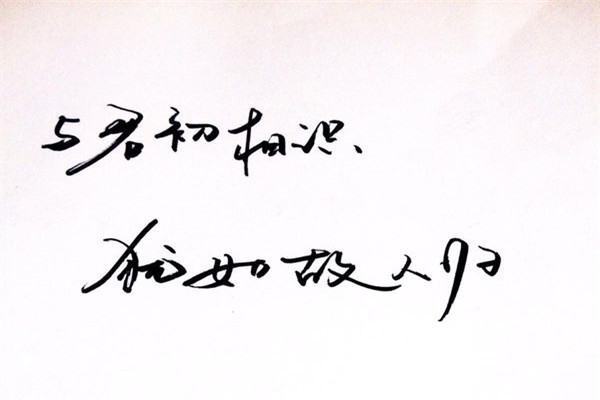 与君初相识、
犹如故人归